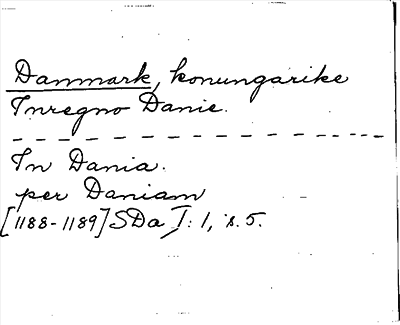 Danmark, konungarike
In regno Danie.
In Dania.
per Daniam
[1188-1189] SDa I: 1, s. 5.